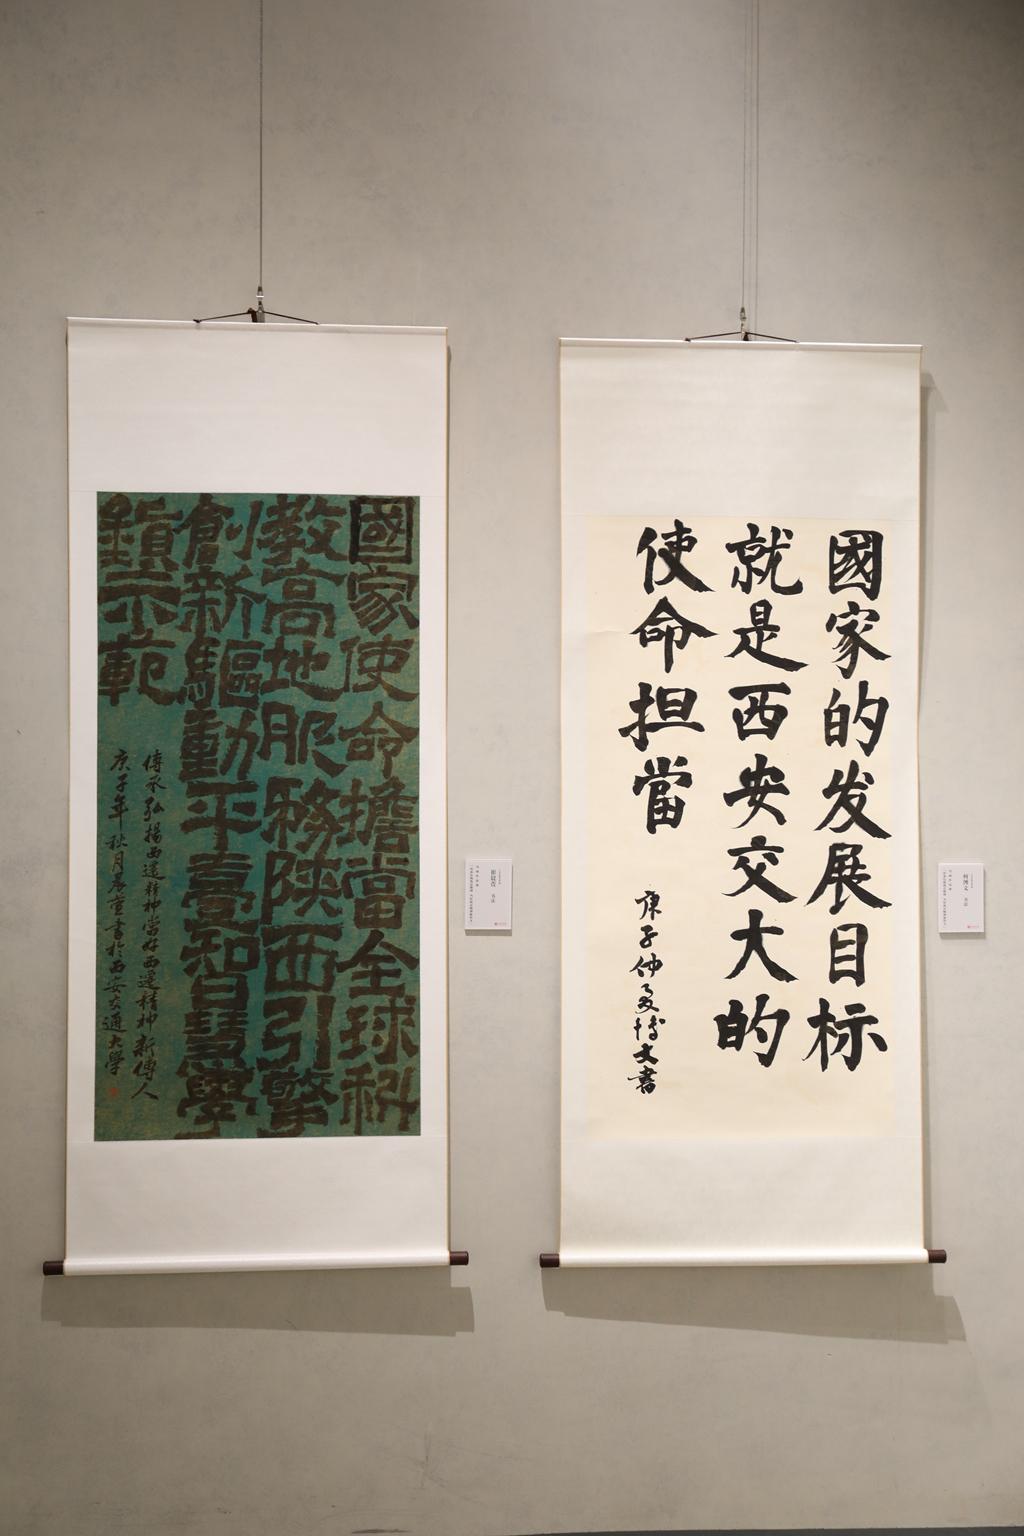 國家的发展目标
就是西安交大的
使命担當
庚子仲夏博文書
國家使命擔當全球科
教高地服務陝西引擎
創新驅動平臺智慧學
鎮示範
傳承弘揚西遷精神當好西遷精神新傳人
庚子年秋月晨萱書於西安交通大學
书法
书法